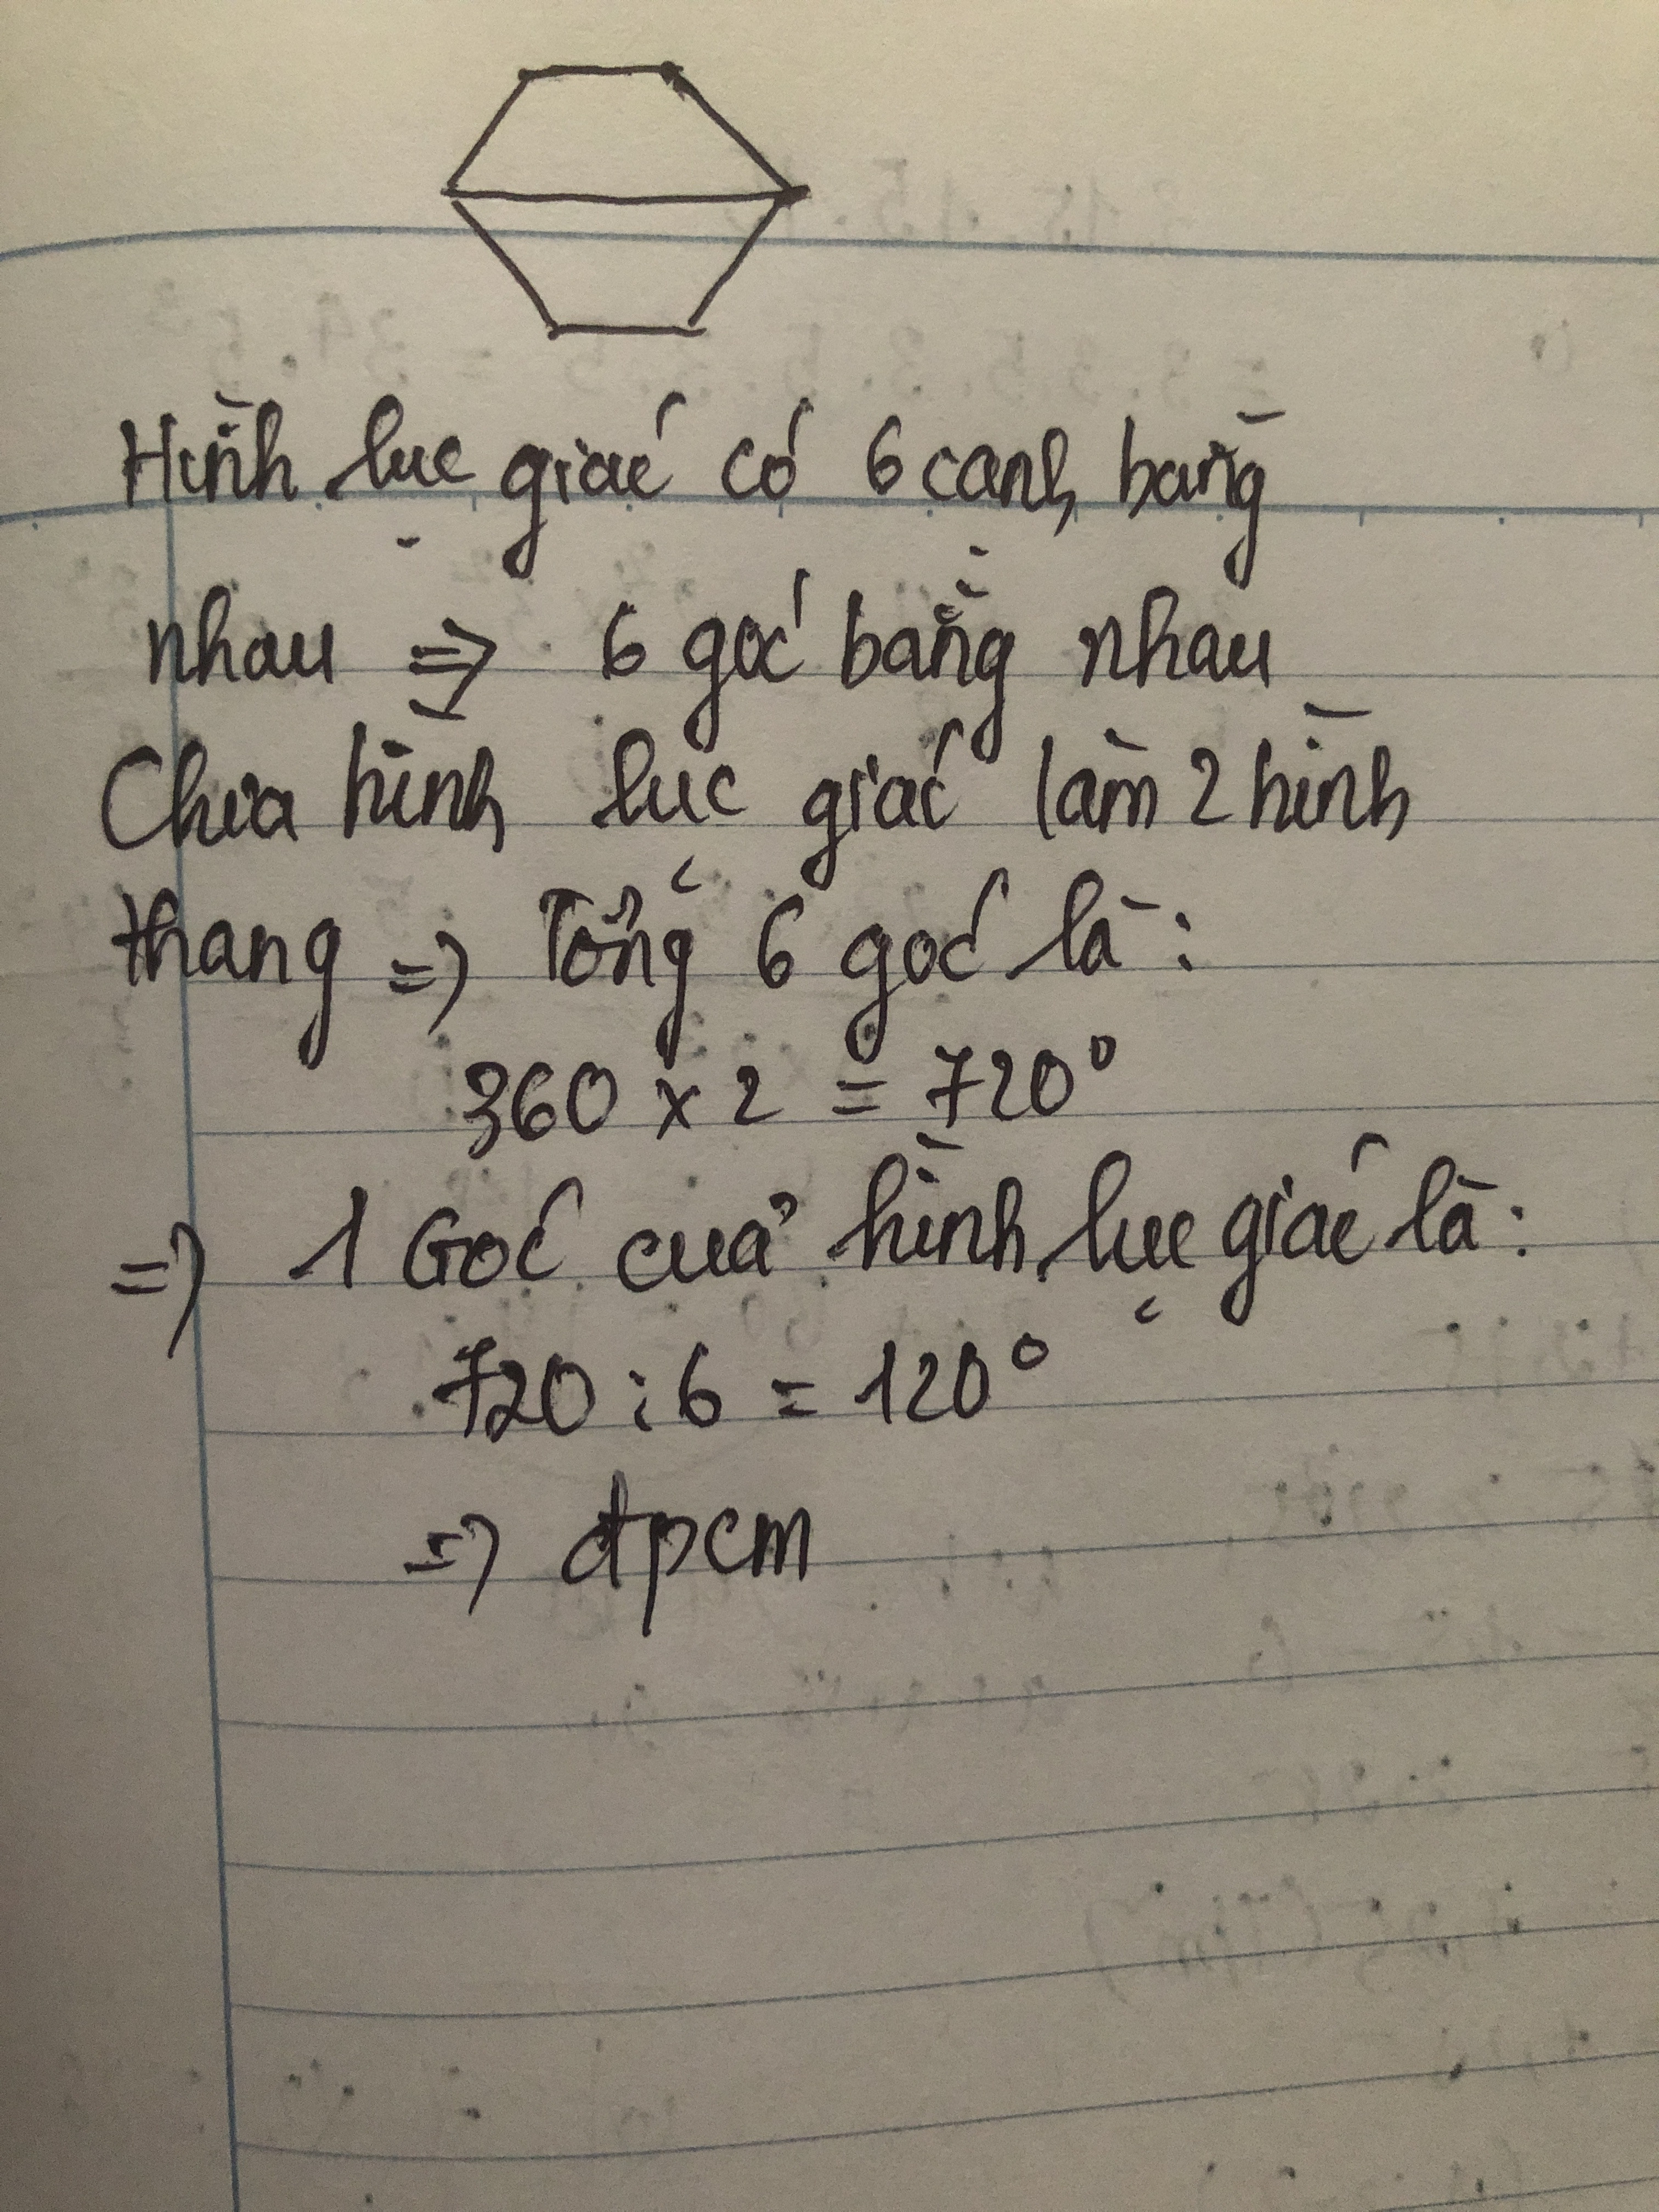 Hình lục giác có 6 cạnh bằng
nhau => 6 góc bằng nhau
Chia hình lục giác làm 2 hình
thang => Tổng 6 góc là:
360 x 2 = 720°
=> 1 Góc của hình lục giác là:
720 : 6 = 120°
=> đpcm